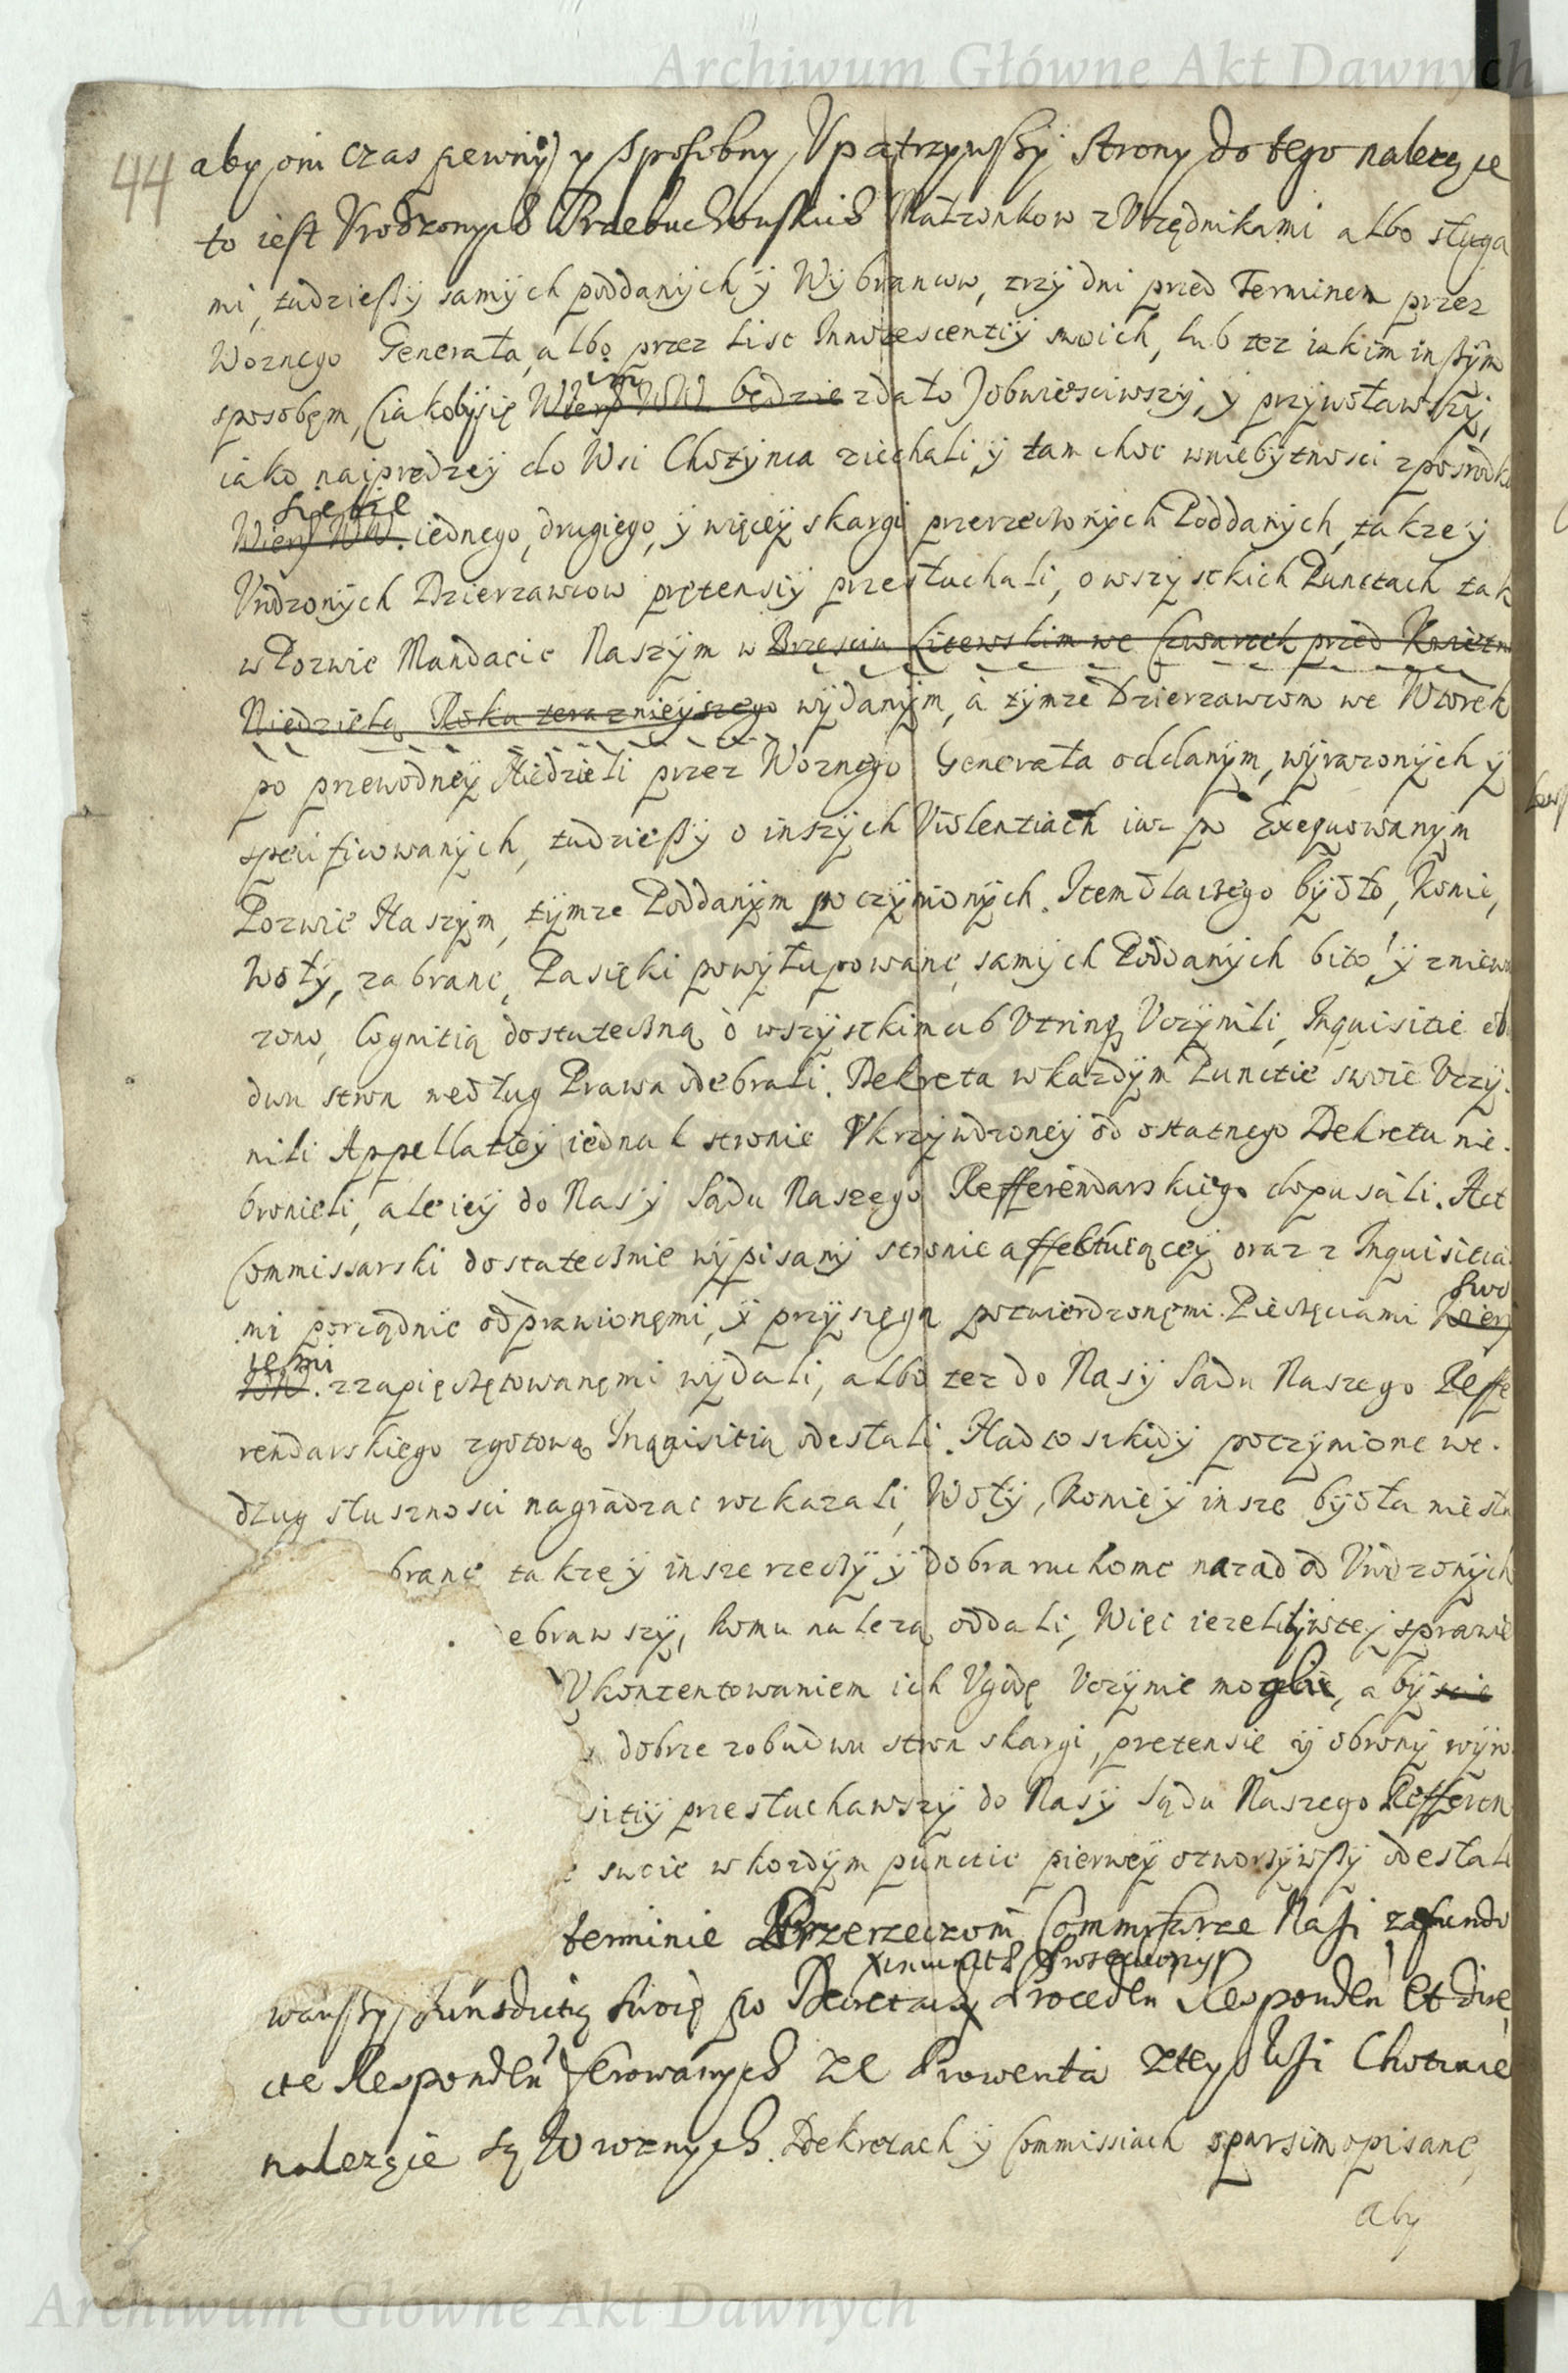 Archiwum Główne Akt Dawnych
44
aby oni czas pewny y sposobny Vpatrzywszy strony do tego nalezące
to iest Vrodzonych Przebuchowskich Małzonkow z Vrzędnikami albo sługa
mi, tudzieszÿ samÿch poddanÿch ÿ Wÿbrancow, trzÿ dni przed Terminem przez
Woznego Generała, albo przez List Innotescentiÿ swoich, lub tez iakim inszÿm
im
sposobęm, (iakobÿ się Wiern WW. będzie zdało) obwiesciwszÿ, ÿ przÿwoławszÿ,
iako naÿprędzeÿ do Wsi Chotÿnca ziechali, ÿ tam choc w niebÿtnosci zposrodku
siebie
Wiern WW. iednego, drugiego, ÿ więceÿ skargi przerzeczonÿch Poddanÿch, takze ÿ
Vrodzonÿch Dzierzawcow prętensiÿ przesłuchali, o wszÿstkich Punctach tak
w Pozwie Mandacie Naszÿm w Brzesciu Litewskim we Czwartek przed Kwietn
Niedzielą Roku teraznieÿszego wÿdanÿm, à tÿmze Dzierzawcom we Wtorek
po przewodneÿ Niedzieli przez Woznego Generała oddanÿm, wÿrazonÿch ÿ
specificowanÿch, tudzieszÿ o inszÿch Violentiach iuz po Exequowanÿm
Pozwie Naszÿm, tÿmze Poddanÿm poczÿnionÿch. Item dlaczego bÿdło, Konie,
Wołÿ, zabrane, Pasieki powÿłupowane, samÿch Poddanÿch bito, ÿ zniewa
zono, Cognitią dostateczną o wszÿstkim ab Vtrinq Vczÿnili, Inquisitie ob
dwu stron według Prawa odebrali. Dekreta w kazdÿm Punctie swoie Vczÿ.
nili Appellatieÿ iednak stronie Vkrzÿwdzoneÿ od ostatnego Dekretu nie.
bronieli, ale ieÿ do Nas ÿ Sądu Naszego Refferendarskiego dopuscili. Act
Commissarski dostatecznie wÿpisanÿ stronie affektuiąceÿ oraz z Inquisitia.
swo
mi porządnie odprawionęmi, ÿ przÿsięgą potwierdzonęmi. Pieczęciami Wiern
iemi
WW. zzapieczętowanęmi wÿdali, albo tez do Nas ÿ Sądu Naszego Reffe
rendarskiego zgotową Inquisitią odesłali. Nadto szkodÿ poczÿnione we.
dług słusznosci nagradzac rozkazali, Wołÿ, Konie ÿ insze bÿdła niesłu
brane takze ÿ insze rzeczÿ ÿ dobra ruchome nazad od Vrodzonÿch
ebrawszÿ, komu nalezą oddali, Więc iezeli w teÿ sprawie
Vkontentowaniem ich Vgodę Vczÿnic mogli, abÿ scie
dobrze zobudwu stron skargi, pretensie ÿ obronÿ wÿw
sitiÿ przesłuchawszÿ do Nas ÿ Sądu Naszego Refferen
swoie w kozdÿm punctie pierweÿ otworzÿwszÿ odesłali
terminie Przerzeczoni Commissarze Nasi zafundo
wawszy Iurisdictią swoię po Decretach Proceden Responden et dire
cte Responden ferowanych ze Prowenta z tey Wsi Chotynie
nalezące są W roznych. Dekretach ÿ Commissiach sparsim opisane,
aby
Archiwum Główne Akt Dawnych